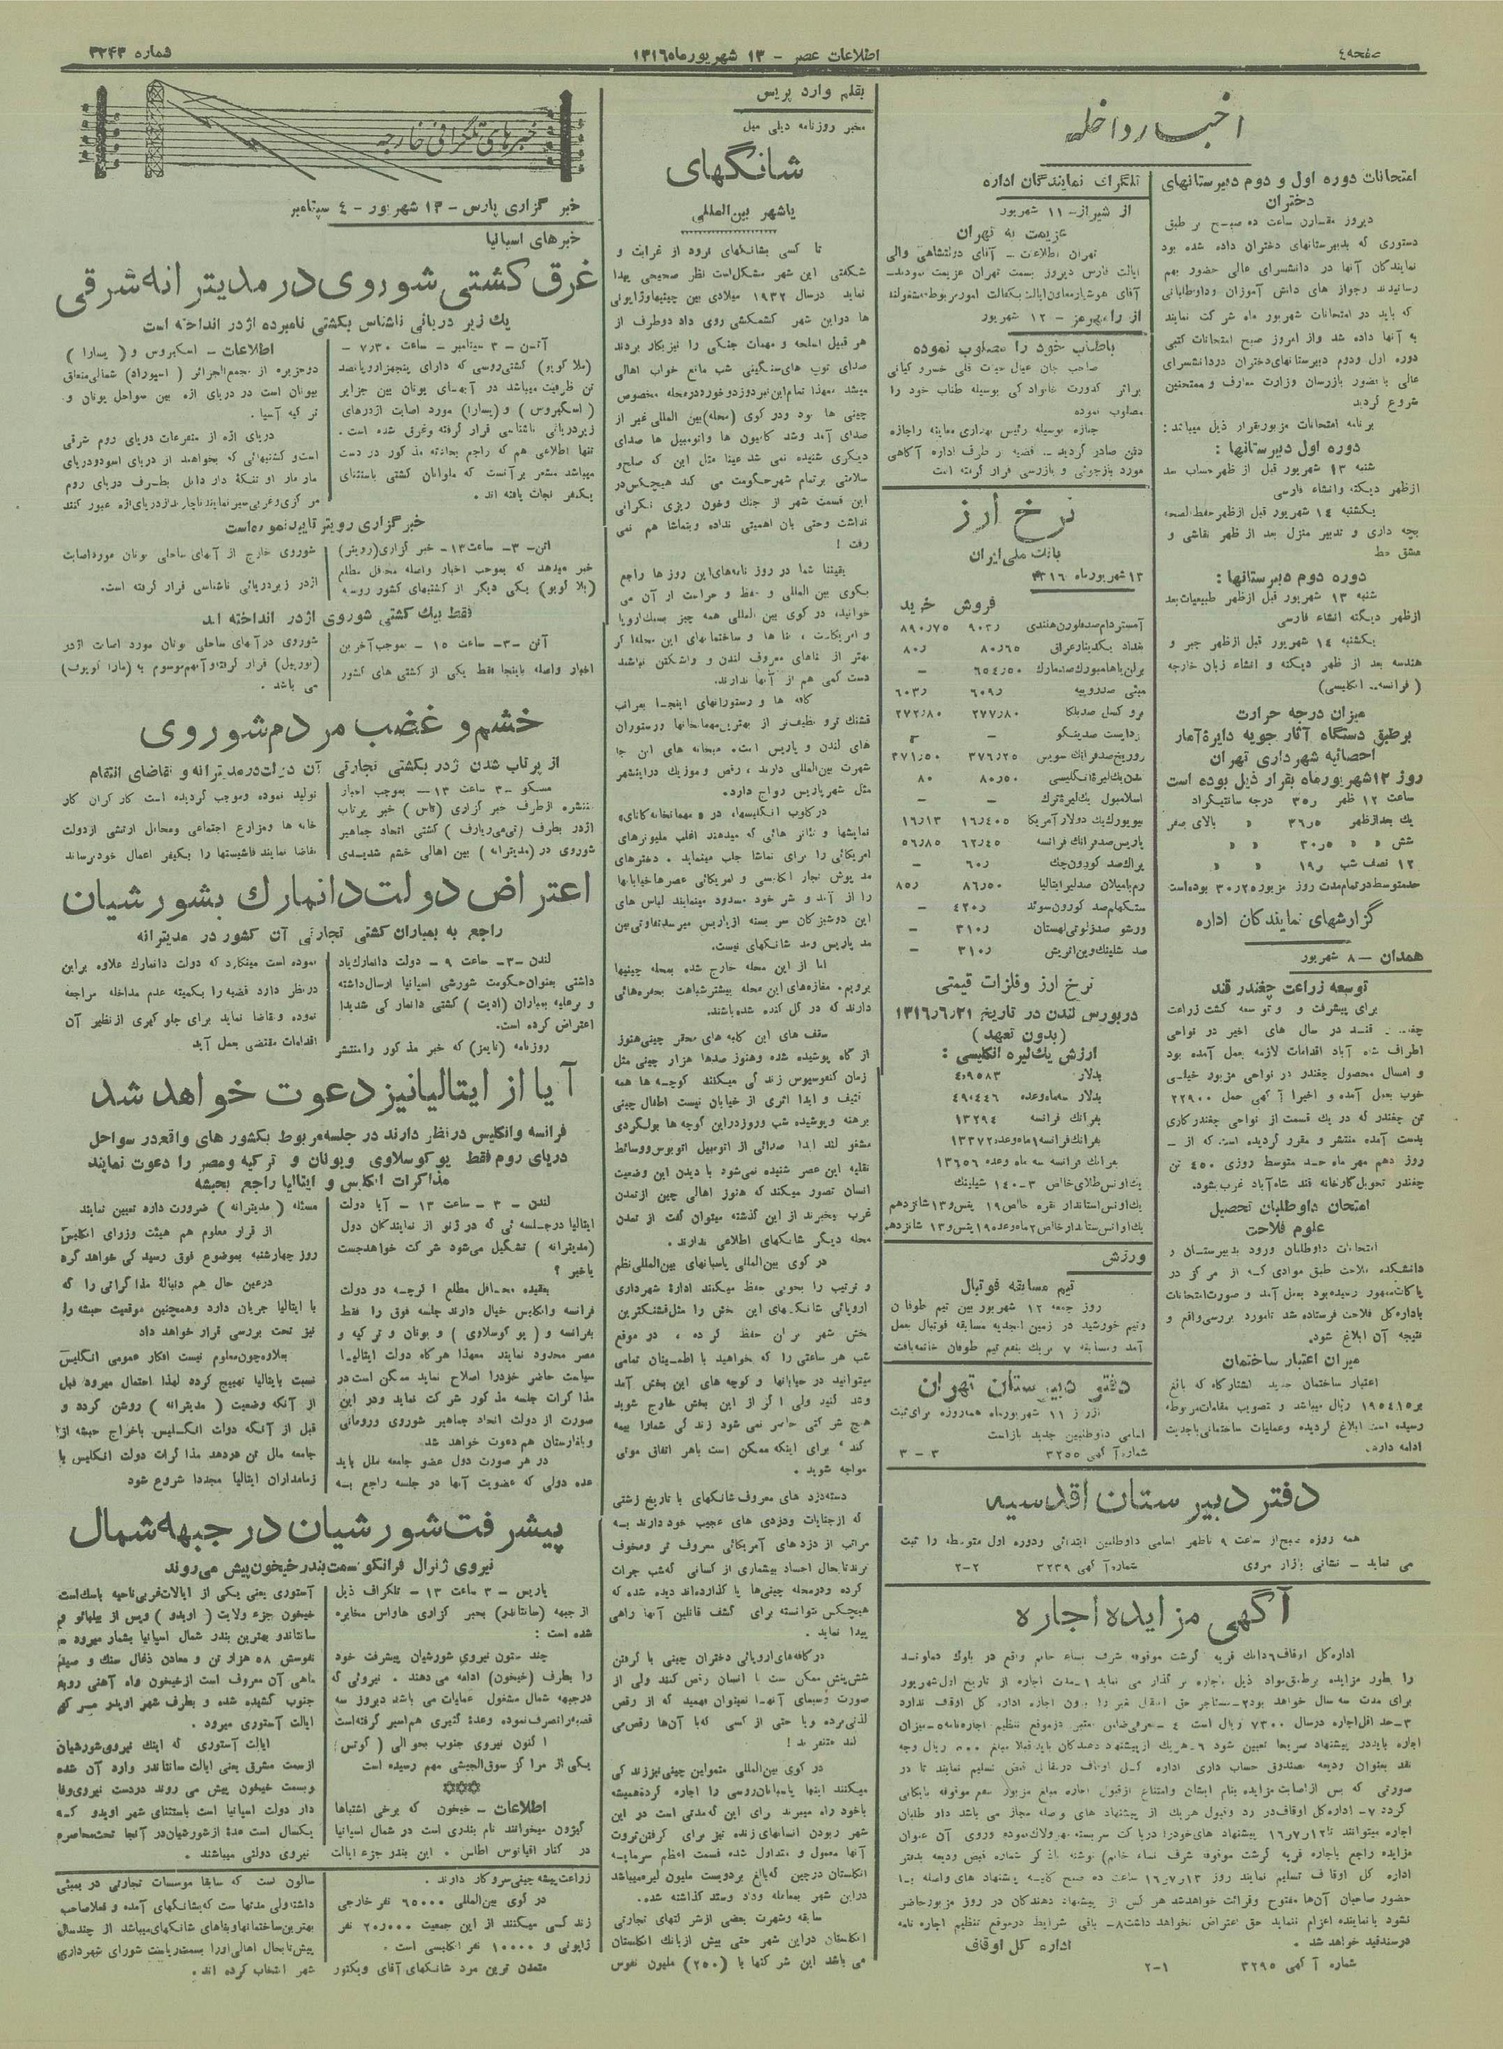 صفحه ٤
اطلاعات عصر - ١٣ شهریورماه ١٣١٦
شماره ٣٢٤٣
اخبار داخله
امتحانات دوره اول و دوم دبیرستانهای
دختران
دیروز مقارن ساعت ده صبح بر طبق
دستوری که بدبیرستانهای دختران داده شده بود
نمایندگان آنها در دانشسرای عالی حضور بهم
رسانیدند رجواز های دانش آموزان وداوطلبانی
که باید در امتحانات شهریور ماه شرکت نمایند
به آنها داده شد واز امروز صبح امتحانات کتبی
دوره اول ودوم دبیرستانهای دختران دردانشسرای
عالی باحضور بازرسان وزارت معارف و ممتحنین
شروع گردید
برنامه امتحانات مزبور بقرار ذیل میباشد :
دوره اول دبیرستانها :
شنبه ١٣ شهریور قبل از ظهر حساب بعد
ازظهر دیکته وانشاء فارسی
یکشنبه ١٤ شهریور قبل ازظهر حفظ الصحه
بچه داری و تدبیر منزل بعد از ظهر نقاشی و
مشق خط
دوره دوم دبیرستانها :
شنبه ١٣ شهریور قبل ازظهر طبیعیات بعد
ازظهر دیکته انشاء فارسی
یکشنبه ١٤ شهریور قبل ازظهر جبر و
هندسه بعد از ظهر دیکته و انشاء زبان خارجه
( فرانسه .. انگلیسی)
میزان درجه حرارت
برطبق دستگاه آثار جویه دایرۀ آمار
احصائیه شهرداری تهران
روز ١٢ شهریورماه بقرار ذیل بوده است
ساعت ١٢ ظهر ٣٥ر درجه سانتیگراد
یک بعدازظهر ٣٦ر٥ » بالای صفر
شش » » ٣٠ر٥ » »
١٢ نصف شب ١٩ر » »
حدمتوسط درتمام مدت روز مزبور ٣٠ر٢٥ بوده است
گزارشهای نمایندگان اداره
همدان - ٨ شهریور
توسعه زراعت چغندر قند
برای پیشرفت و توسعه کشت زراعت
چغندر قند در سال های اخیر در نواحی
اطراف شاه آباد اقدامات لازمه بعمل آمده بود
و امسال محصول چغندر در نواحی مزبور خیلی
خوب بعمل آمده و اخیرا آگهی حمل ٢٢٩٠٠
تن چغندر که در یک قسمت از نواحی چغندرکاری
بدست آمده منتشر و مقرر گردیده است که از
روز دهم مهر ماه حد متوسط روزی ٤٥٠ تن
چغندر تحویل کارخانه قند شاه آباد غرب بشود.
امتحان داوطلبان تحصیل
علوم فلاحت
امتحانات داوطلبان ورود بدبیرستان و
دانشکده فلاحت طبق موادی که از مرکز در
پاکات ممهور رسیده بود بعمل آمد و صورت امتحانات
باداره کل فلاحت فرستاده شد تامورد بررسی واقع و
نتیجه آن ابلاغ شود.
میزان اعتبار ساختمان
اعتبار ساختمان جدید افشارگاه که بالغ
بر ١٩٥٤١٥ ریال میباشد و تصویب مقامات مربوطه
رسیده است ابلاغ گردیده وعملیات ساختمانی باجدیت
ادامه دارد.
تلگراف نمایندگان اداره
از شیراز - ١١ شهریور
عزیمت به تهران
تهران اطلاعات - آقای دولتشاهی والی
ایالت فارس دیروز بسمت تهران عزیمت نمودند
آقای هوشیار معاون ایالت بکفالت امور مربوطه مشغولند
از رامهرمز - ١٢ شهریور
باطناب خود را مصلوب نموده
صاحب جان عیال حیات قلی خسرو کیانی
براثر کدورت خانوادگی بوسیله طناب خود را
مصلوب نموده
جنازه بوسیله رئیس بهداری معاینه واجازه
دفن صادر گردید - قضیه از طرف اداره آگاهی
مورد بازجوئی و بازرسی قرار گرفته است
نرخ ارز
بانک ملی ایران
١٣ شهریور ماه ١٣١٦
فروش خرید
آمستردام صد فلورن هلندی ٩٠٣ر ٨٩٠ر٧٥
بغداد یکدینار عراق ٨٠ر٦٥ ٨٠ر
برلن یا هامبورک صدمارک ٦٥٤ر٥٠ -
بمبئی صدروپیه ٦٠٩ر ٦٠٣ر
بروکسل صدبلگا ٢٧٧ر٨٠ ٢٧٢ر٨٠
بوداپست صدپنگو - -
زوریخ صدفرانک سویس ٣٧٦ر٢٥ ٣٧١ر٥٠
لندن یک لیرۀ انگلیسی ٨٠ر٥٠ ٨٠
اسلامبول یک لیرۀ ترک - -
نیویورک یک دولار آمریکا ١٦ر٤٠٥ ١٦ر١٣
پاریس صد فرانک فرانسه ٦٢ر٤٥ ٥٦ر٨٥
پراک صد کورون چک ٦٠ر -
رم یا میلان صد لیرایتالیا ٨٦ر٥٠ ٨٥ر
ستکهلم صد کورون سوئد ٤٢٠ر -
ورشو صدزلوتی لهستان ٣١٠ر -
صد شلینک وین اتریش ٣١٠ر -
نرخ ارز وفلزات قیمتی
در بورس لندن در تاریخ ١٣١٦ر٦ر٢١
(بدون تعهد)
ارزش یک لیره انگلیسی :
بدلار ٤ر٩٥٨٣
بدلار سه ماه وعده ٤ر٩٠٤٤٦
بفرانک فرانسه ١٣٢٩٤
بفرانک فرانسه ١ماه وعده ١٣٣٧٢
بفرانک فرانسه سه ماه وعده ١٣٦٥٦
یک اونس طلای خالص ٣-١٤٠ شیلینک
یک اونس استاندار نقره خالص ١٩ پنس و ١٣ شانزدهم
یک اونس ستاندار خالص ٢ماه وعده ١٩ پنس و ١٣ شانزدهم
ورزش
تیم مسابقه فوتبال
روز جمعه ١٢ شهریور بین تیم طوفان
وتیم خورشید در زمین امجدیه مسابقه فوتبال بعمل
آمد ومسابقه ٧ بریک بنفع تیم طوفان خاتمه یافت
دفتر دبیرستان تهران
ازرز ١١ شهریورماه همه روزه برای ثبت
اسامی داوطلبین جدید بازاست
شماره آگهی ٣٢٥٥ ٣ - ٣
دفتر دبیرستان اقدسیه
همه روزه صبح از ساعت ٩ تاظهر اسامی داوطلبین ابتدائی ودوره اول متوسطه را ثبت
می نماید - نشانی بازار مروی شماره آگهی ٣٢٣٩ ٢-٢
آگهی مزایده اجاره
اداره کل اوقاف ٦دانک قریه گرشت موقوفه شرف نساء خانم واقع در بلوک دماوند
را بطور مزایده برطبق مواد ذیل باجاره واگذار می نماید ١-مدت اجاره از تاریخ اول شهریور
برای مدت سه سال خواهد بود ٢-مستاجر حق انتقال بغیر را بدون اجازه اداره کل اوقاف ندارد
٣-حداقل اجاره درسال ٧٣٠٠ ریال است ٤ -معرفی ضامن معتبر درموقع تنظیم اجاره نامه ٥-میزان
اجاره بایددر پیشنهاد صریحا تعیین شود ٦-هریک ازپیشنهاد دهندگان باید قبلا مبلغ ٥٠٠ ریال وجه
نقد بعنوان ودیعه بصندوق حساب داری اداره کل اوقاف درمقابل قبض تسلیم نمایند تا در
صورتی که پس ازاصابت مزایده بنام ایشان وامتناع ازقبول اجاره مبلغ مزبور بنفع موقوفه بایگانی
گردد ٧- اداره کل اوقاف در رد وقبول هریک از پیشنهاد های واصله مجاز می باشد داو طلبان
اجاره میتوانند تا ١٢ر٧ر١٦ پیشنهاد های خودرا درپاکت سربسته مهرولاک نموده وروی آن عنوان
مزایده راجع باجاره قریه گرشت موقوفه شرف نساء خانم) نوشته باذکر شماره قبض ودیعه بدفتر
اداره کل اوقاف تسلیم نمایند روز ١٣ر٧ر١٦ ساعت ده صبح کلیه پیشنهاد های واصله با
حضور صاحبان آن‌ها مفتوح وقرائت خواهدشد هر کس از پیشنهاد دهندگان در روز مزبور حاضر
نشود یانماینده اعزام ننماید حق اعتراض نخواهد داشت ٨- باقی شرایط درموقع تنظیم اجاره نامه
درسند قید خواهد شد .
اداره کل اوقاف
شماره آگهی ٣٢٩٥ ٢-١
بقلم وارد پریس
مخبر روزنامه دیلی میل
شانگهای
یاشهر بین‌المللی
تا کسی بشانگهای نرود از غرابت و
شگفتی این شهر مشکل است نظر صحیحی پیدا
نماید درسال ١٩٣٢ میلادی بین چینیها و ژاپونی
ها دراین شهر کشمکشی روی داد دوطرف از
هر قبیل اسلحه و مهمات جنگی را نیز بکار بردند
صدای توپ های سنگینی شب مانع خواب اهالی
میشد معهذا تمام این نبرد و زدوخورد درمحله مخصوص
چینی ها بود ودر کوی (محله) بین المللی غیر از
صدای آمد وشد کامیون ها واتومبیل ها صدای
دیگری شنیده نمی شد عینا مثل این که صلح و
سلامتی برتمام شهر حکومت می کند هیچکس در
این قسمت شهر از جنک وخون ریزی نگرانی
نداشت وحتی بان اهمیتی نداده وبتماشا هم نمی
رفت !
یقینا شما در روز نامه‌های این روز ها راجع
بکوی بین المللی و حفظ و حراست از آن می
خوانید، در کوی بین المللی همه چیز بسبک اروپا
و امریکاست ، بنا ها و ساختمانهای این محله اگر
بهتر از بناهای معروف لندن و واشنگتن نباشند
دست کمی هم از آنها ندارند.
کافه ها و رستورانهای اینجا بمراتب
قشنک تر و نظیف‌تر از بهترین مهمانخانها ورستوران
های لندن و پاریس است. میخانه های این جا
شهرت بین‌المللی دارند ، رقص و موزیک دراینشهر
مثل شهرپاریس رواج دارد.
درکلوب انگلیسها، در » مهمانخانه کاتای»
نمایشها و تئاتر هائی که میدهند اغلب ملیونرهای
امریکائی را برای تماشا جلب مینماید . دخترهای
مد پوش تجار انگلیسی و امریکائی عصرها خیابانها
را از آمد و شد خود مسدود مینمایند لباس های
این دوشیزگان سر بسته ازپاریس میرسد تفاوتی بین
مد پاریس ومد شانگهای نیست.
اما از این محله خارج شده بمحله چینیها
برویم. مغازه‌های این محله بیشتر شباهت بحفره‌هائی
دارند که در گل کنده شده باشند.
سقف های این کلبه های محقر چینی هنوز
از گاه پوشیده شده وهنوز صدها هزار چینی مثل
زمان کنفوسیوس زندگی میکنند کوچه ها همه
کثیف و ابدا اثری از خیابان نیست اطفال چینی
برهنه و پوشیده شب وروز دراین کوچه ها بولگردی
مشغو لند ابدا صدائی از اتومبیل اتوبوس ووسائط
نقلیه این عصر شنیده نمی‌شود با دیدن این وضعیت
انسان تصور میکند که هنوز اهالی چین ازتمدن
غرب بیخبرند از این گذشته میتوان گفت از تمدن
محله دیگر شانگهای اطلاعی ندارند.
در کوی بین‌المللی پاسبانهای بین‌المللی نظم
و ترتیب را بخوبی حفظ میکنند ادارۀ شهرداری
اروپائی شانگهای این بخش را مثل قشنگترین
بخش شهر لندن حفظ کرده ، در موقع
شب هر ساعتی را که بخواهید با اطمینان تمامی
میتوانید در خیابانها و کوچه های این بخش آمد
وشد کنید ولی اگر از این بخش خارج شوید
هیچ شرکتی حاضر نمی شود زندگی شمارا بیمه
کند ، برای اینکه ممکن است باهر اتفاق سوئی
مواجه شوید .
دسته‌دزد های معروف شانگهای با تاریخ زشتی
که ازجنایات ودزدی های عجیب خود دارند به
مراتب از دزدهای آمریکائی معروف تر و مخوف
ترند تا بحال اجساد بیشماری از کسانی که شب جرات
کرده ودرمحله چینی‌ها پا گذارده‌اند دیده شده که
هیچکس نتوانسته برای کشف قاتلین آنها راهی
پیدا نماید .
درکافه‌های اروپائی دختران چینی با گرفتن
شش پنس ممکن است با انسان رقص کنند ولی از
صورت وسیمای آنها نمیتوان فهمید که از رقص
لذتی برده ویا حتی از کسی که با آن‌ها رقص می
کند متنفر ند !
در کوی بین‌المللی متمولین چینی نیز زندگی
میکنند اینها پاسبانان روسی را اجاره کرده همیشه
باخود راه میبرند رای این که مدتی است در این
شهر ربودن انسانهای زنده نیز برای گرفتن ثروت
آنها معمول و متداول شده قسمت اعظم سرمایه
انگلستان درچین که بالغ بردویست ملیون لیره میباشد
دراین شهر بمعامله وداد وستد گذاشته شده.
سابقه وشهرت بعضی ازشرکتهای تجارتی
انگلستان دراین شهر حتی بیش ازبانک انگلستان
می باشد این شرکتها با (٢٥٠) ملیون نفوس
زراعت پیشه چینی سرو کار دارند .
در کوی بین‌المللی ٦٥٠٠٠ نفر خارجی
زندگی میکنند از این جمعیت ٢٠ر٠٠٠ نفر
ژاپونی و ١٠٠٠٠ نفر انگلیسی است .
متمدن ترین مرد شانگهای آقای ویکتور
ساسون است که سابقا موسسات تجارتی در بمبئی
داشته ولی مدتها ست که بشانگهای آمده و فعلا صاحب
بهترین ساختمانها و بناهای شانگهای میباشد از چند سال
پیش تا بحال اهالی اورا بسمت ریاست شورای شهرداری
شهر انتخاب کرده اند .
خبرهای تلگرافی خارجه
خبر گزاری پارس - ١٣ شهریور - ٤ سپتامبر
خبرهای اسپانیا
غرق کشتی شوروی در مدیترانه شرقی
یک زیر دریائی ناشناس بکشتی نامبرده اژدر انداخته است
آتن - ٣ سپتامبر - ساعت ٧ر٣٠ -
(بلا گویو) کشتی روسی که دارای پنجهزار و پانصد
تن ظرفیت میباشد در آبهای یونان بین جزایر
(اسکیروس) و (پسارا) مورد اصابت اژدرهای
زیردریائی ناشناسی قرار گرفته وغرق شده است.
تنها اطلاعی هم که راجع بحادثه مذکور در دست
میباشد مشعر برآنست که ملوانان کشتی باستثنای
یکنفر نجات یافته اند .
اطلاعات - اسکیروس و ( پسارا )
دوجزیره از مجمع‌الجزائر ( اسپوراد) شمالی متعلق
بیونان است در دریای اژه بین سواحل یونان و
ترکیه آسیا .
دریای اژه از متفرعات دریای روم شرقی
است و کشتیهائی که بخواهند از دریای اسود و دریای
مارمار از تنگۀ دار دانل بطرف دریای روم
مرکزی وغربی سیر نمایند ناچارند از دریای اژه عبور کنند
خبرگزاری رویتر تایید نموده است
آتن - ٣- ساعت ١٣ - خبر گزاری (رویتر)
خبر میدهد که بموجب اخبار واصله محافل مطلع
(بلا گویو) یکی دیگر از کشتیهای کشور روسیه
شوروی خارج از آبهای ساحلی یونان مورد اصابت
اژدر زیردریائی ناشناسی قرار گرفته است.
فقط یک کشتی شوروی اژدر انداخته اند
آتن - ٣- ساعت ١٥ - بموجب آخرین
اخبار واصله باینجا فقط یکی از کشتی های کشور
شوروی در آبهای ساحلی یونان مورد اصابت اژدر
قرار گرفته و آنهم موسوم به
می باشد .
خشم و غضب مردم شوروی
از پرتاب شدن اژدر بکشتی تجارتی آن دولت در مدیترانه و تقاضای انتقام
مسکو - ٣ ساعت ١٣ - بموجب اخبار
منتشره ازطرف خبر گزاری (تاس) خبر پرتاب
اژدر بطرف (تی می ریازف) کشتی اتحاد جماهیر
شوروی در (مدیترانه) بین اهالی خشم شدیدی
تولید نموده وموجب گردیده است کارگران کار
خانه ها ومزارع اجتماعی ومحافل ارتشی ازدولت
تقاضا نمایند فاشیستها را بکیفر اعمال خود برساند
اعتراض دولت دانمارک بشورشیان
راجع به بمباران کشتی تجارتی آن کشور در مدیترانه
لندن - ٣- ساعت ٩ - دولت دانمارک یاد
داشتی بعنوان حکومت شورشی اسپانیا ارسال داشته
و برعلیه بمباران کشتی دانمارکی شدیدا
اعتراض کرده است.
روزنامه (تایمز) که خبر مذکور را منتشر
نموده است مینگارد که دولت دانمارک علاوه براین
درنظر دارد قضیه را بکمیته عدم مداخله مراجعه
نموده وتقاضا نماید برای جلوگیری ازنظیر آن
اقدامات مقتضی بعمل آید
آیا از ایتالیا نیز دعوت خواهد شد
فرانسه وانگلیس درنظر دارند در جلسه مربوط بکشور های واقع در سواحل
دریای روم فقط یوگوسلاوی ویونان و ترکیه ومصر را دعوت نمایند
مذاکرات انگلیس و ایتالیا راجع بحبشه
لندن - ٣ - ساعت ١٣ - آیا دولت
ایتالیا درجلسه ئی که در ژنو از نمایندگان دول
(مدیترانه ) تشکیل می‌شود شرکت خواهد جست
یاخیر ؟
بعقیده محافل مطلع اگرچه دو دولت
فرانسه وانگلیس خیال دارند جلسه فوق را فقط
بفرانسه و ( یوگوسلاوی ) و یونان و ترکیه و
مصر محدود نمایند معهذا هرگاه دولت ایتالیا
سیاست حاضر خودرا اصلاح نماید ممکن است در
مذاکرات جلسه مذکور شرکت نماید ودر این
صورت از دولت اتحاد جماهیر شوروی ورومانی
وبلغارستان هم دعوت خواهد شد.
در هر صورت دول عضو جامعه ملل باید
عده دولی که عضویت آنها در جلسه راجع به
مسئله ( مدیترانه ) ضرورت دارد تعیین نمایند
از قرار معلوم هم هیئت وزرای انگلیس
روز چهارشنبه بموضوع فوق رسیدگی خواهد کرد
درعین حال هم دنبالۀ مذاکراتی را که
با ایتالیا جریان دارد وهمچنین موقعیت حبشه را
نیز تحت بررسی قرار خواهد داد
بعلاوه چون معلوم نیست افکار عمومی انگلیس
نسبت بایتالیا تهییج کرده لهذا احتمال میرود قبل
از آنکه وضعیت ( مدیترانه ) روشن گردد و
قبل از آنکه دولت انگلیس باخراج حبشه از
جامعه ملل تن دردهد مذاکرات دولت انگلیس با
زمامداران ایتالیا مجددا شروع شود
پیشرفت شورشیان در جبهه شمال
نیروی ژنرال فرانکو بسمت بندر خیخون پیش می‌روند
پاریس - ٣ ساعت ١٣ - تلگراف ذیل
از جبهه (سانتاندر) بخبر گزاری هاواس مخابره
شده است :
چند ستون نیروی شورشیان پیشرفت خود
را بطرف (خیخون) ادامه می‌دهند . نیروئی که
درجبهه شمال مشغول عملیات می باشد دیروز سه
قصبه را تصرف نموده وعدۀ کثیری هم اسیر گرفته‌است
اکنون نیروی جنوب بحوالی
یکی از مراکز سوق‌الجیشی مهم رسیده است
اطلاعات - خیخون که برخی اشتباها
گیژون میخوانند نام بندری است در شمال اسپانیا
در کنار اقیانوس اطلس . این بندر جزء ایالت
آستوری یعنی یکی از ایالات غربی ناحیه باسک است
خیخون جزء ولایت ( اویدو ) وپس از بیلبائو و
سانتاندر بهترین بندر شمال اسپانیا بشمار میرود
نفوسش ٥٨ هزار تن و معادن ذغال سنک و صید
ماهی آن معروف است ازخیخون راه آهنی رو به
جنوب کشیده شده و بطرف شهر اویدو مرکز
ایالت آستوری میرود .
ایالت آستوری که اینک نیروی شورشیان
ازسمت مشرق یعنی ایالت سانتاندر وارد آن شده
وبسمت خیخون پیش می روند دردست نیروی وفا
دار دولت اسپانیا است باستثنای شهر اویدو که
یکسال است عدۀ ازشورشیان در آنجا تحت محاصره
نیروی دولتی میباشند .